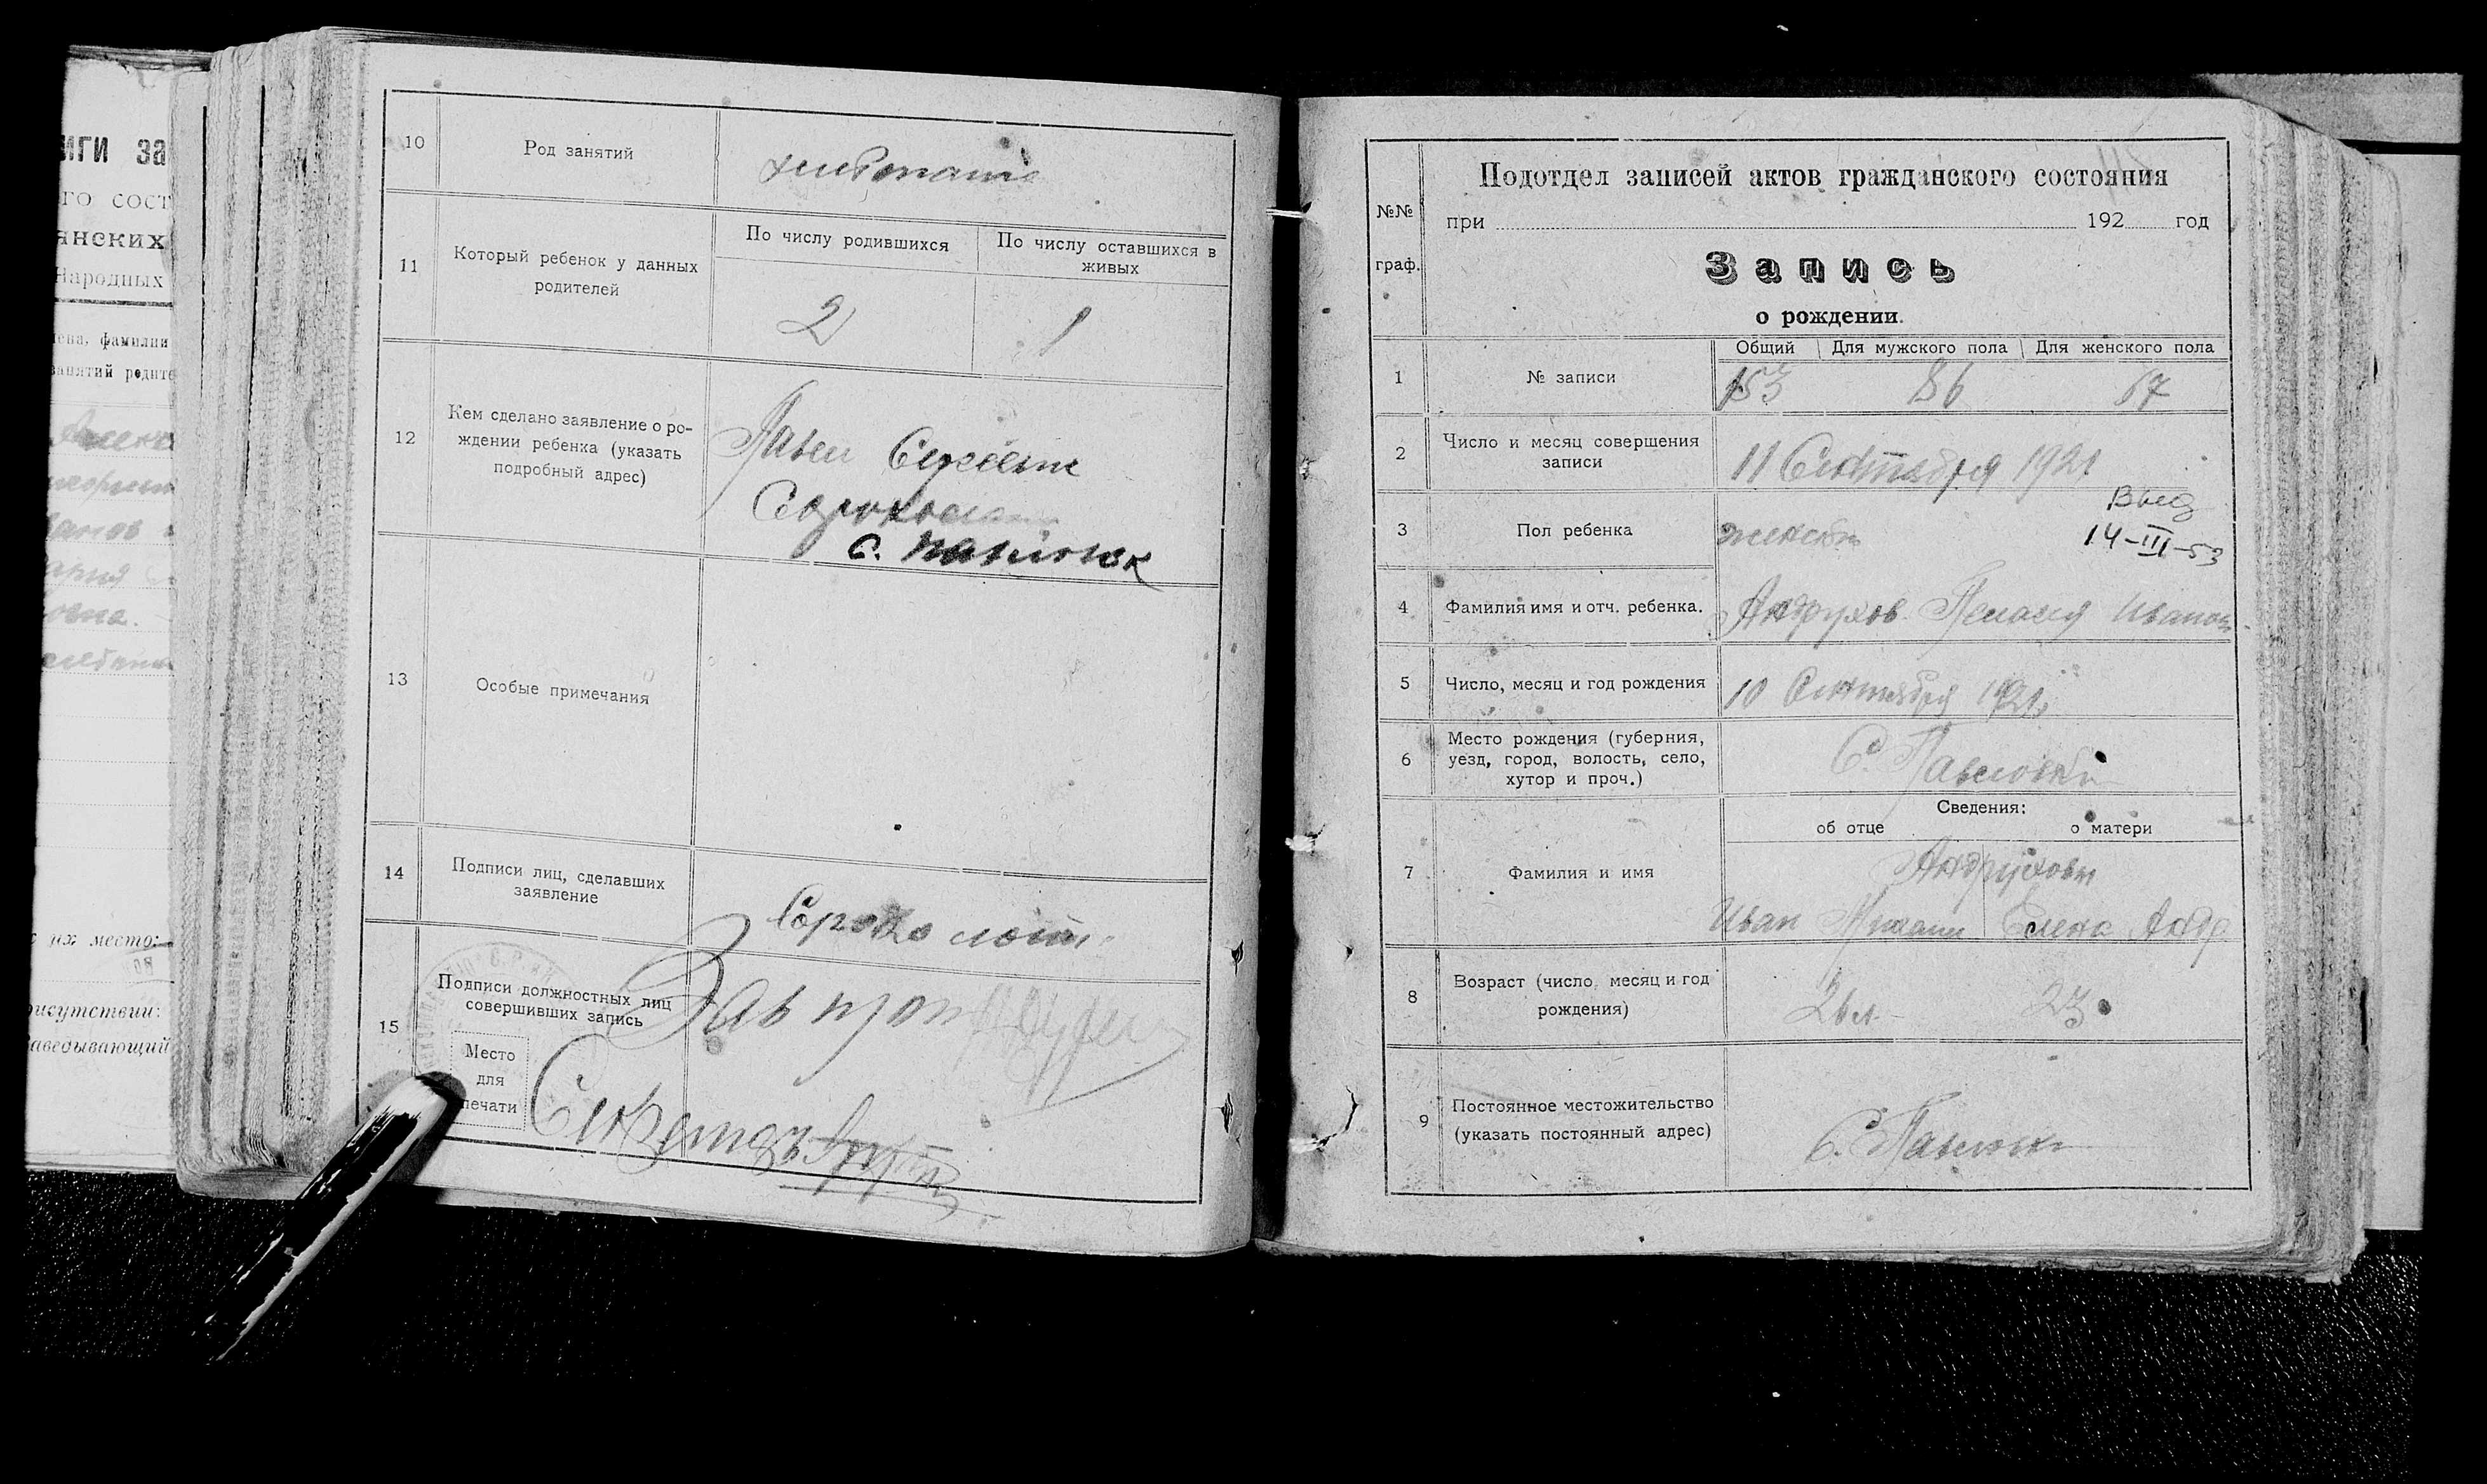 иги за
го сост
янских
Народных
ена, фамилии
занятий родите
их место:
рисутствии:
аведывающий
10 Род занятий
11 Который ребенок у данных родителей
По числу родившихся
По числу оставшихся в живых
2 1
12 Кем сделано заявление о ро-
ждении ребенка (указать
подробный адрес)
Павел
13 Особые примечания
14 Подписи лиц, сделавших
заявление
15 Подписи должностных лиц
совершивших запись
Место
для
печати
№№
граф.
Подотдел записей актов гражданского состояния
при 192 год
Запись
о рождении.
Общий Для мужского пола Для женского пола
1 № записи 153 86 67
2 Число и месяц совершения
записи
11 Сентября 1921
Выд
14-III-53
3 Пол ребенка женск
4 Фамилия имя и отч. ребенка. Андрухов Пелагея Иванов
5 Число, месяц и год рождения 10 Сентября 1921
6 Место рождения (губерния,
уезд, город, волость, село,
хутор и проч.)
С. Павловка
Сведения:
об отце о матери
7 Фамилия и имя
Андруховы
Иван Михаил Елена Андр
8 Возраст (число, месяц и год
рождения)
26 л. 23
9 Постоянное местожительство
(указать постоянный адрес)
С. Павловка